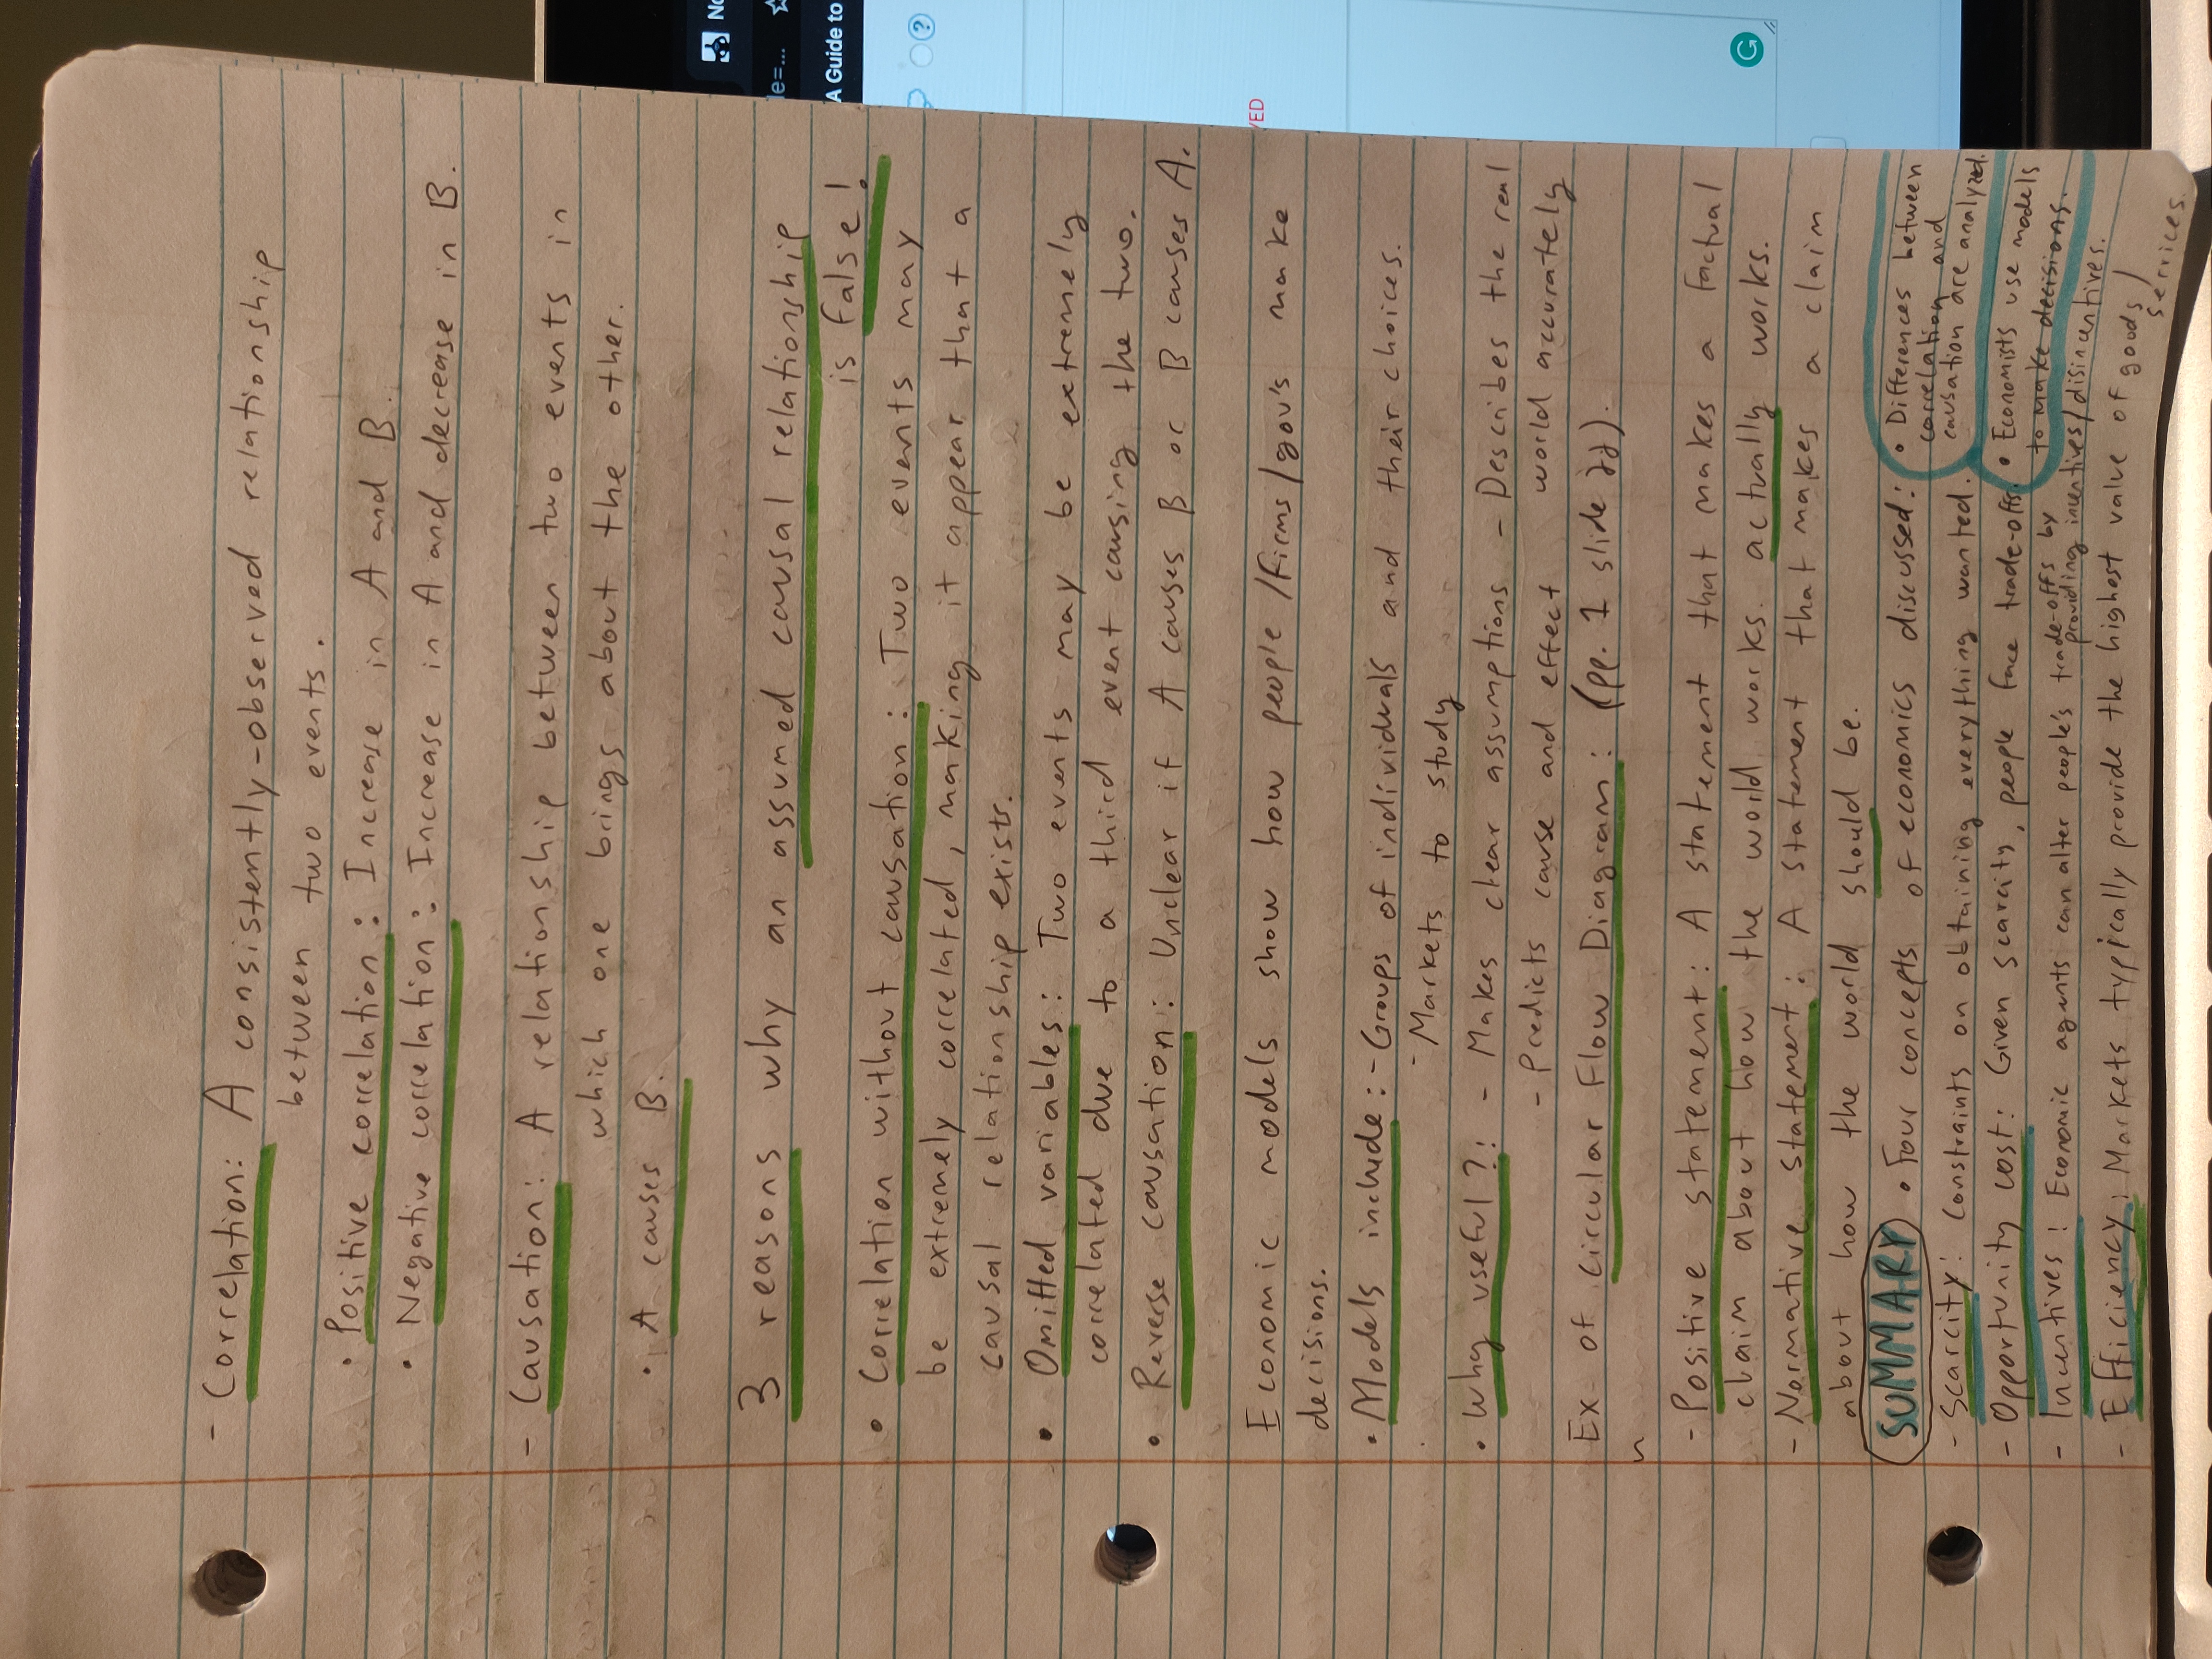 - Correlation: A consistently-observed relationship
between two events.
• Positive correlation: Increase in A and B.
• Negative correlation: Increase in A and decrease in B.
- Causation: A relationship between two events in
which one brings about the other.
• A causes B.
3 reasons why an assumed causal relationship
is false!
• Correlation without causation: Two events may
be extremely correlated, making it appear that a
causal relationship exists.
• Omitted variables: Two events may be extremely
correlated due to a third event causing the two.
• Reverse causation: Unclear if A causes B or B causes A.
Economic models show how people/firms/gov's make
decisions.
• Models include: - Groups of individuals and their choices.
- Markets to study
• Why useful?: - Makes clear assumptions - Describes the real
- Predicts cause and effect world accurately
Ex of Circular Flow Diagram: (pp. 1 slide 22).
- Positive statement: A statement that makes a factual
claim about how the world works. actually works.
- Normative statement: A statement that makes a claim
about how the world should be.
SUMMARY • Four concepts of economics discussed:
- Scarcity: Constraints on obtaining everything wanted.
- Opportunity cost: Given scarcity, people face trade-offs.
- Incentives: Economic agents can alter people's trade-offs by
providing incentives/disincentives.
- Efficiency: Markets typically provide the highest value of goods/
services.
• Differences between
correlation and
causation are analyzed.
• Economists use models
to make decisions.
No
le=...
A Guide to
?
VED
G